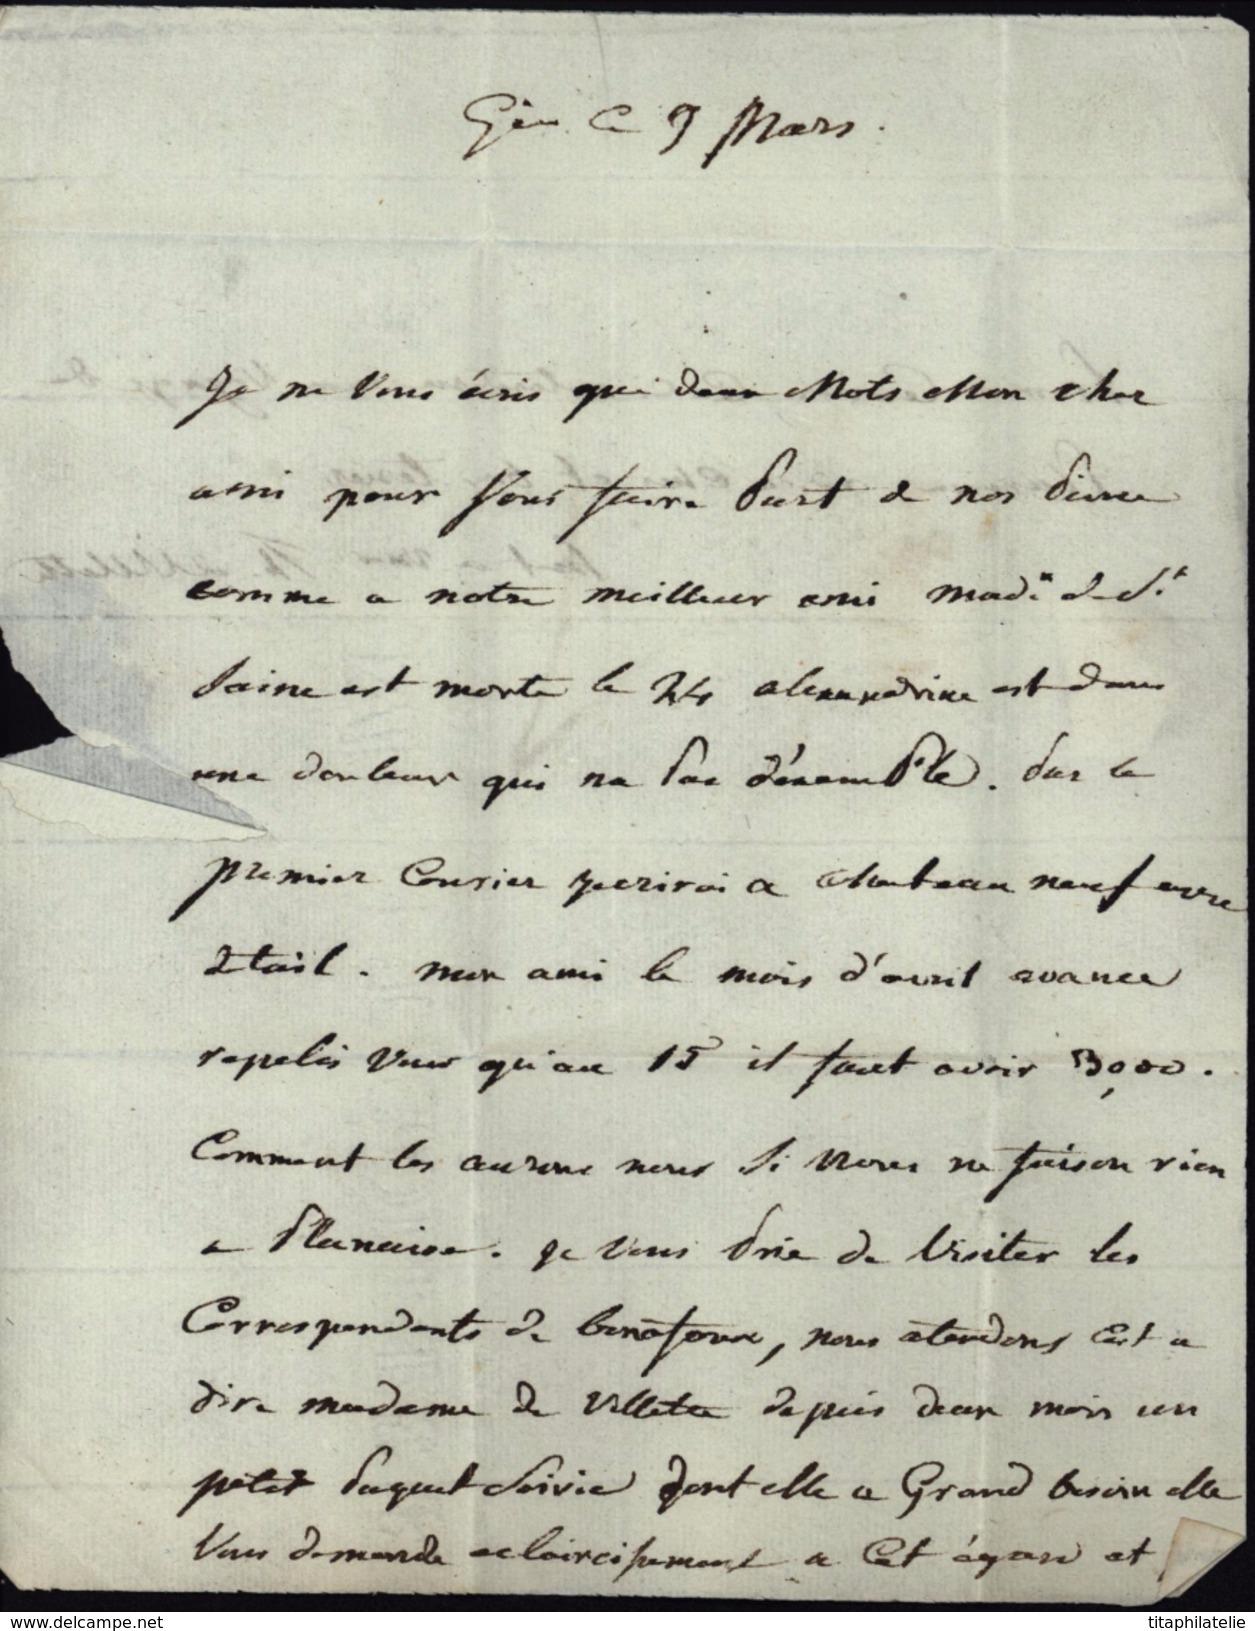 ce 9 Mars.
Je ne vous écris que deux Mots Mon cher
ami pour vous faire part de nos
comme a notre meilleur ami mad.e de St
est morte le 24 alexandrine est dans
une douleur qui na pas d'éxemple. par le
premier Courier jecrirai a chateau neuf
detail. mon ami le mois d'avril avance
repelés vous qu'au 15 il faut avoir 3,000.
Comment les aurons nous si nous ne faison rien
a Planaise. je vous prie de visiter les
Correspondents de bonafoux, nous atendons cest a
dire madame de Villette depuis deux mois un
petit paquet dont elle a Grand besoin elle
vous demande eclaircissement a cet égard et
titaphilatelie